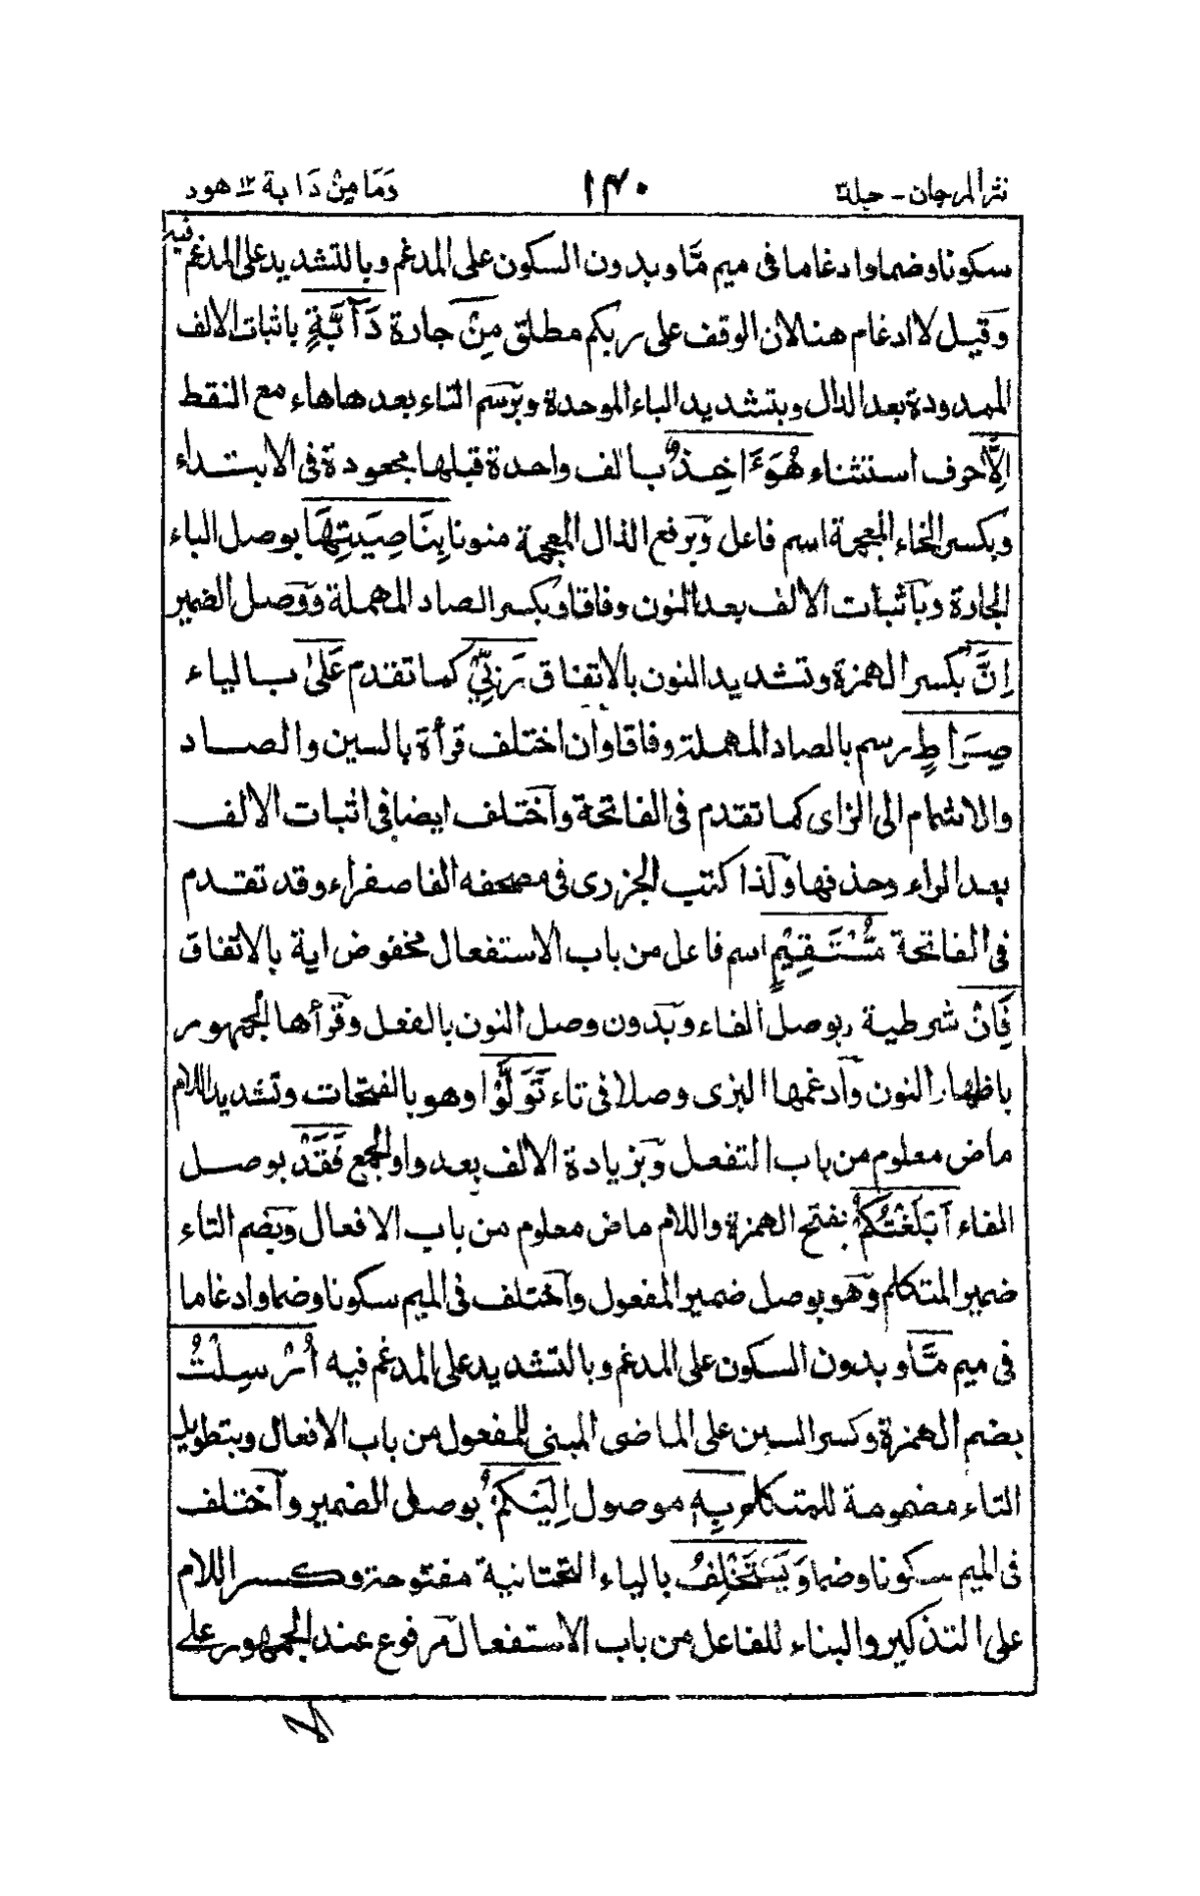 نثر المرجان - جلد ٣ ١٤٠ وَمَا مِنْ دَابة ١٢ هود
سكونا وضما وادغاما فى ميم مَّا وبدون السكون على المدغم وبالتشديد على المدغم فيه
وقيل لا ادغام هنا لان الوقف على ربكم مطلق مِنْ جارة دَآبَّةٍ باثبات الالف
الممدودة بعد الدال وبتشديد الباء الموحدة وبرسم التاء بعدها هاء مع النقط
اِلَّا حرف استثناء هُوَ ءَاخِذٌۢ بالف واحدة قبلها مجعودة فى الابتداء
وبكسر الخاء المعجمة اسم فاعل وبرفع الذال المعجمة منونا بِنَاصِيَتِهَا بوصل الباء
الجارة وباثبات الالف بعد النون وفاقا وبكسر الصاد المهملة ووصل الضمير
اِنَّ بكسر الهمزة وتشديد النون بالاتفاق رَبِّيْ كما تقدم عَلٰى بالياء
صِرَاطٍ رسم بالصاد المهملة وفاقا وان اختلف قرأة بالسين والصاد
والاشمام الى الزاى كما تقدم فى الفاتحة واختلف ايضا فى اثبات الالف
بعد الراء وحذفها ولذا كتب الجزرى فى مصحفه الفا صفراء وقد تقدم
فى الفاتحة مُّسْتَقِيْمٍ اسم فاعل من باب الاستفعال مخفوض اية بالاتفاق
فَاِنْ شرطية بوصل الفاء وبدون وصل النون بالفعل وقرأها الجمهور
باظهار النون وادغمها البزى وصلا فى تاء تَوَلَّوْا وهو بالفتحات وتشديد اللام
ماض معلوم من باب التفعل وبزيادة الالف بعد واو الجمع فَقَدْ بوصل
الفاء اَبْلَغْتُكُمْ بفتح الهمزة واللام ماض معلوم من باب الافعال وبضم التاء
ضمير المتكلم وهو بوصل ضمير المفعول واختلف فى الميم سكونا وضما وادغاما
فى ميم مَّا وبدون السكون على المدغم وبالتشديد على المدغم فيه اُرْسِلْتُ
بضم الهمزة وكسر السين على الماضى المبنى للمفعول من باب الافعال وبتطويل
التاء مضمومة للمتكلم بِهٖ موصول اِلَيْكُمْ بوصل الضمير واختلف
فى الميم سكونا وضما وَيَسْتَخْلِفُ بالياء التحتانية مفتوحة وكسر اللام
على التذكير والبناء للفاعل من باب الاستفعال مرفوع عند الجمهور على
لا